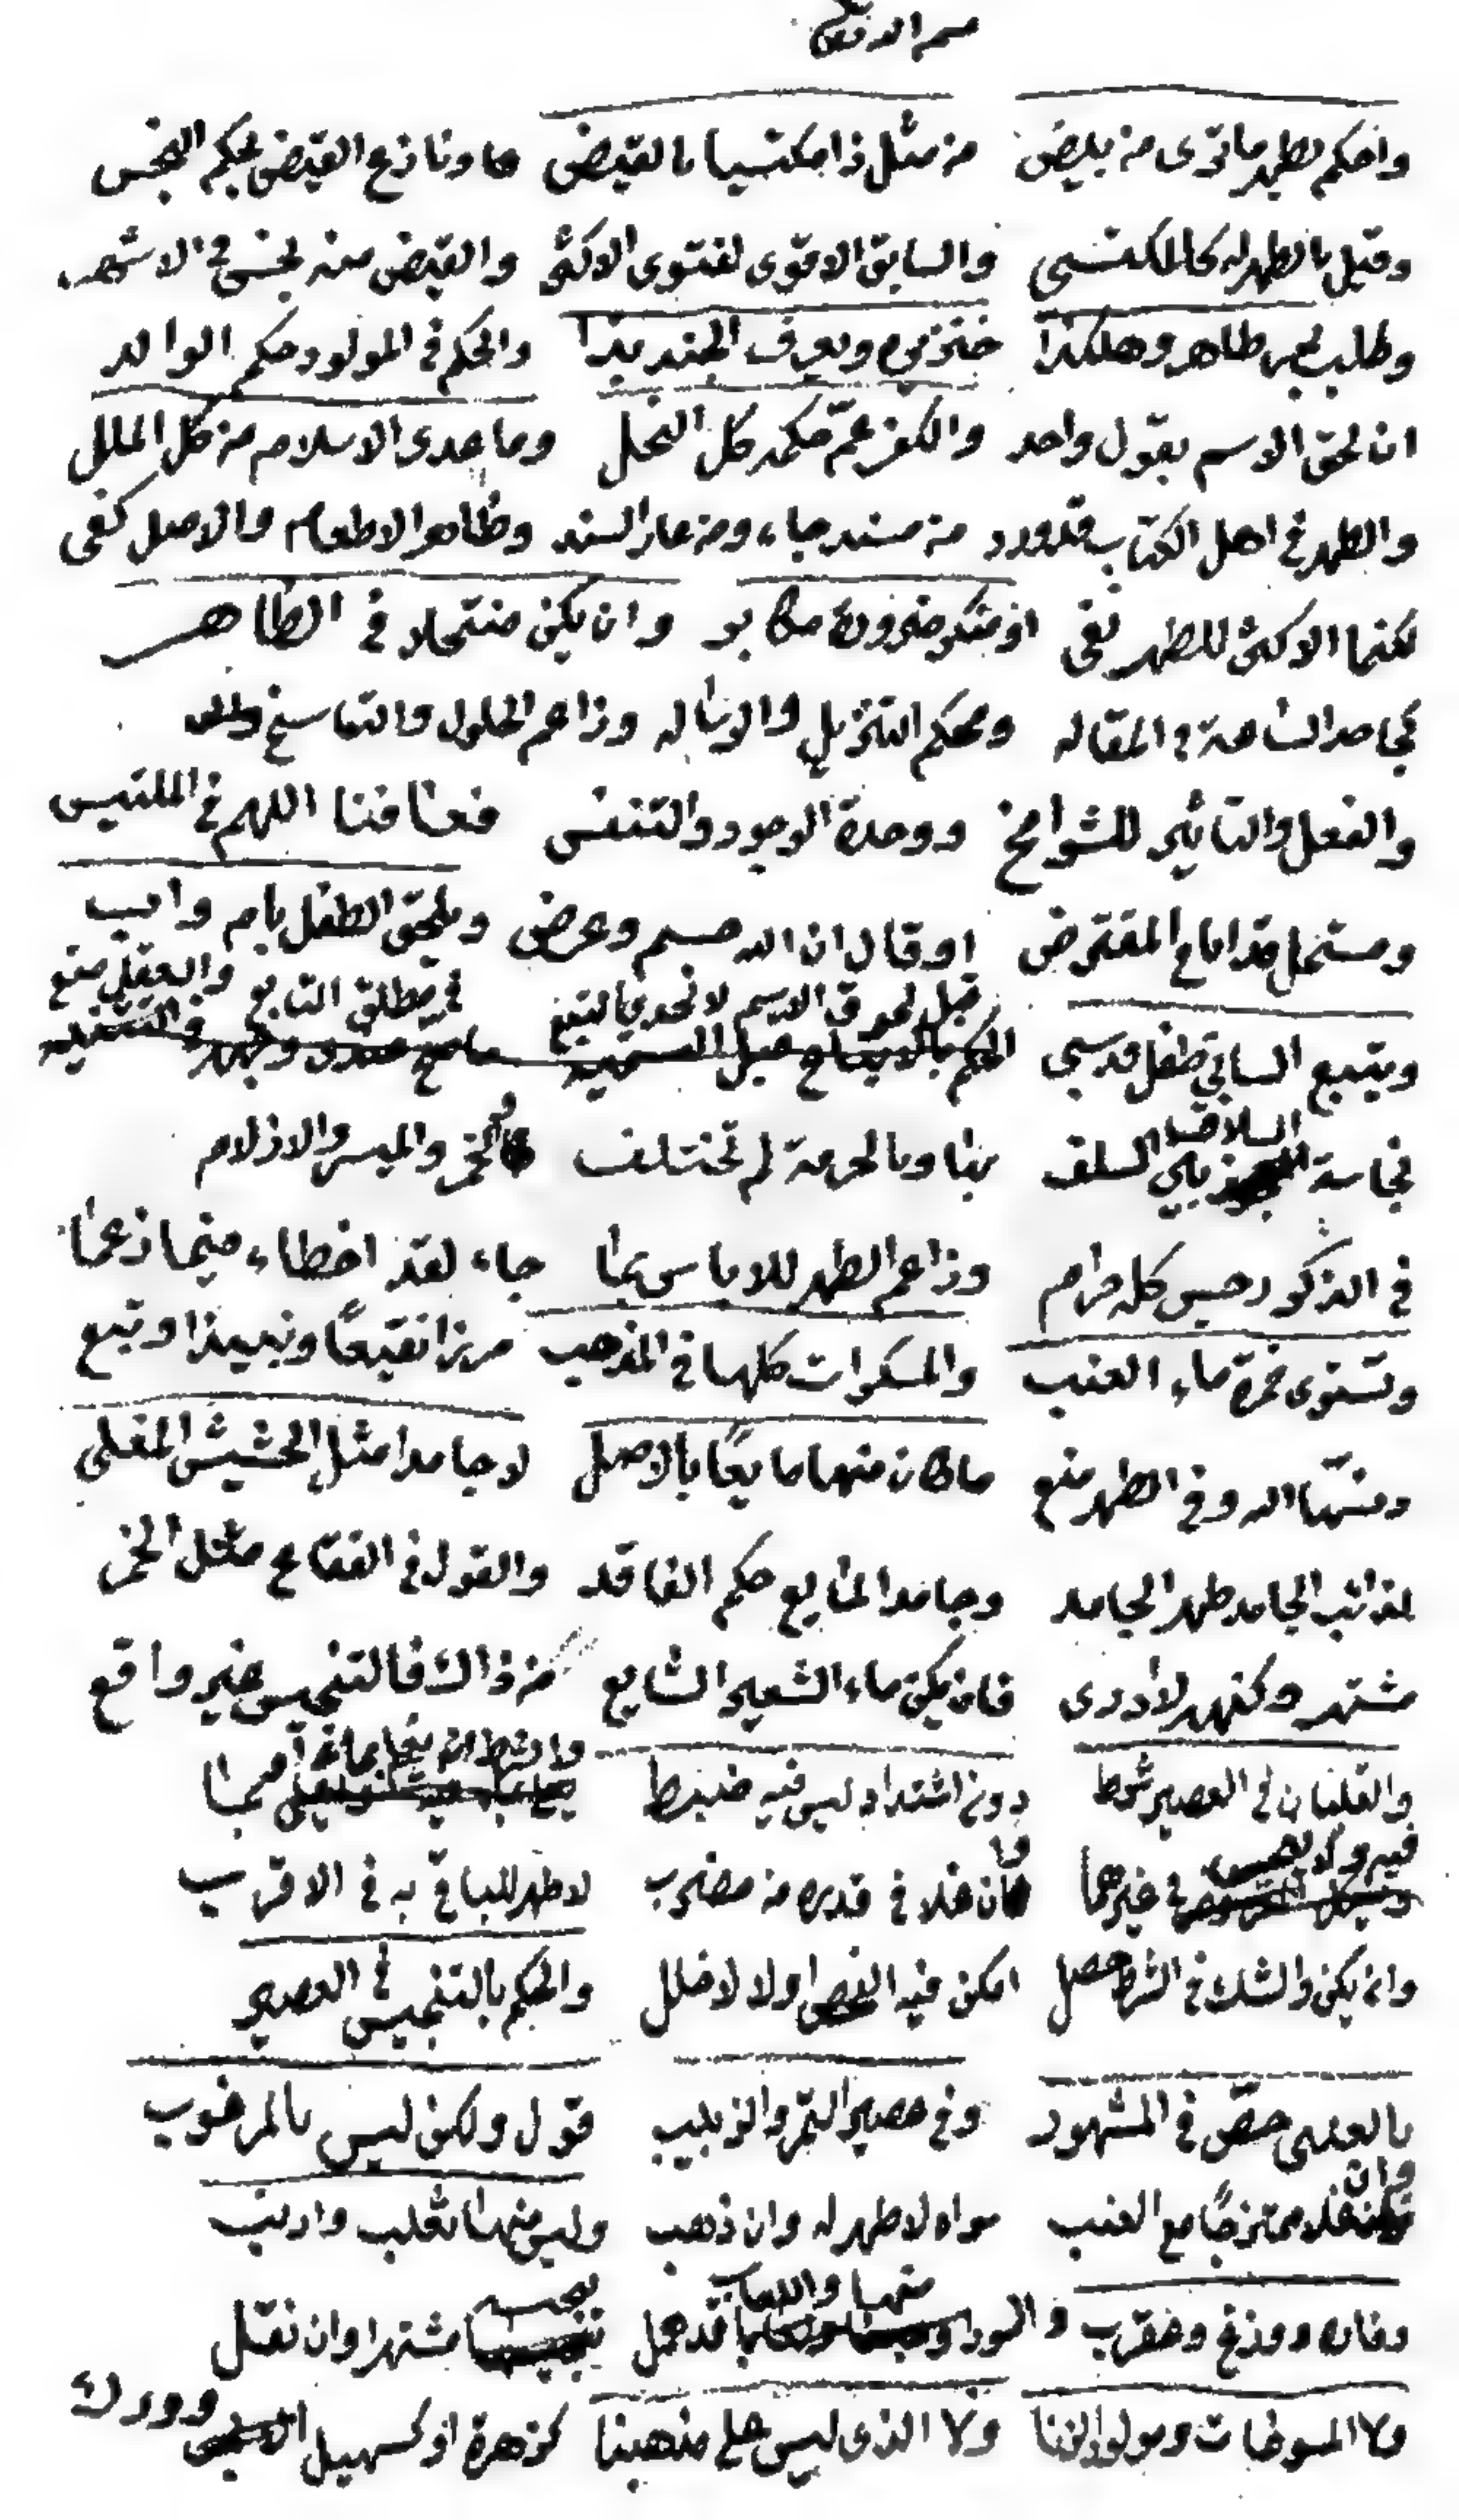 واحكم بطهر ما ترى من بيض من مثل ذا مكتسيا بالقيض وناذع القيض بحكم النجس
وقيل بالطهر له كالمكتسي والسابق الاقوى لفتوى الاكثر والقيض منه نجس في الاشهر
وكلب بحر طاهر وهكذا خنزيره ويعرف الجند بيذا والحكم في المولود حكم الوالد
ان لحق الاسم بقول واحد والكفر عمّ حكمه كل النحل وما عدى الاسلام من كل الملل
والطهر في اهل الكتاب قد ورد من مسند جاء ومن عار السند وظاهر الاطعام والاصل كفى
لكنما الاكثر للطهر نفى او منكر ضرورة مكابر وان يكن منتحلا في الظاهر
كجاحد المقاله ومحكم التنزيل والرساله وزاعم الحلول والتناسخ
والفعل والتاثير للشوامخ ووحدة الوجود والتنفس فعافنا اللهم في الملتبس
ومستحل قد اباح المفترض او قال ان الله جسم وعرض ويلحق الطفل بام واب
ويتبع السابي طفل قد سبي قبل لحوق الاسم لا نحد بالتبع في مطلق التابع والعقل منع
نجاسة السلف بنا وبالحرمة لم تختلف كالخمر والميسر والازلام
في الذكر رجس كله حرام وزاعم الطهر للاباس بما جاء لقد اخطاء فيما زعما
وتستوى خمرة ماء العنب والمسكرات كلها في المذهب مزرا نقيعًا ونبيذا وتبع
وفي الطهر منع ما كان منها مايعًا بالاصل لا جامدا مثل الحشيش المغلي
الجامد طهر الجامد وجامد المايع حكم الفاقد والقول في الفقاع مثل الخمر
مشتهر وكنهه لا ادرى فان يكن ماء الشعير الشايع من ذاك فالتنجيس غير واقع
والغليان في العصير شرط دون اشتداد ليس فيه ضبط
في غيرهما وان غلا في قدره من مضرب لا طهر للباقي به في الاقرب
وان يكن والشك في الشرط حصل امكن فيه الفحص اولا لا خلل والحكم بالتنجيس في العصير
بالعنبي خصّ في المشهور وفي عصير التمر والزبيب قول ولكن ليس بالمرغوب
وان غلا ممتزجًا مع العنب سواه لا طهر له وان ذهب وليس منها ثعلب وارنب
وفاره ووزغ وعقرب والسور منها واللعاب قد حمل مشتهرا وان نقل
ولا المسوخات ومولود الزنا ولا الذى ليس على مذهبنا كزهرة او كسهيل